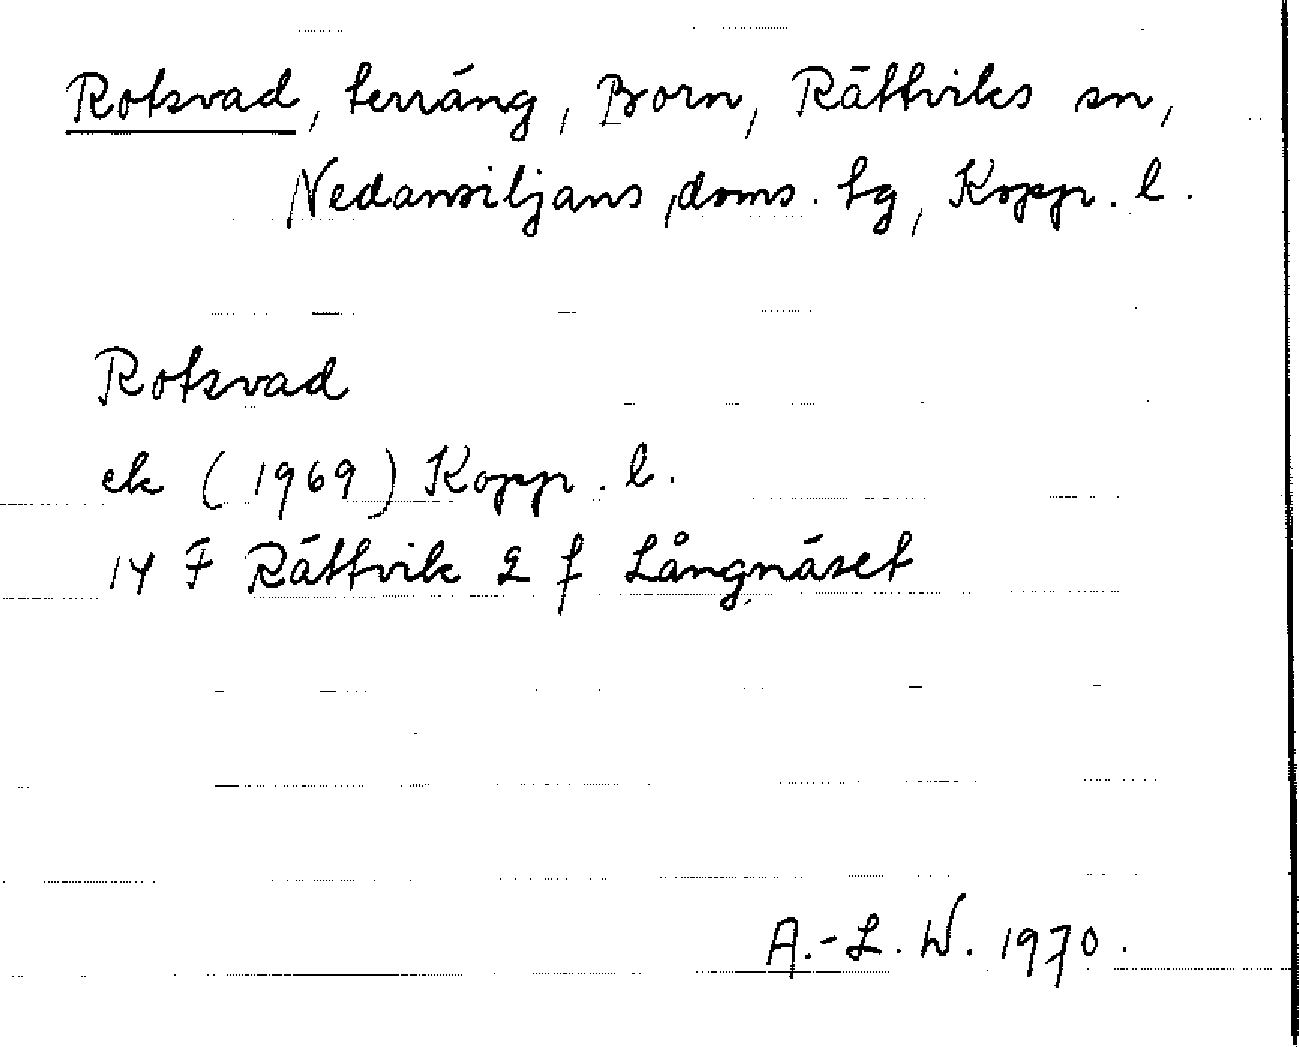 Rotsvad, terräng, Born, Rättviks sn,
Nedansiljans doms. tg, Kopp. l.
Rotsvad
ek (1969) Kopp. l.
14 F Rättvik 2 f Långnäset
A.-L. W. 1970.